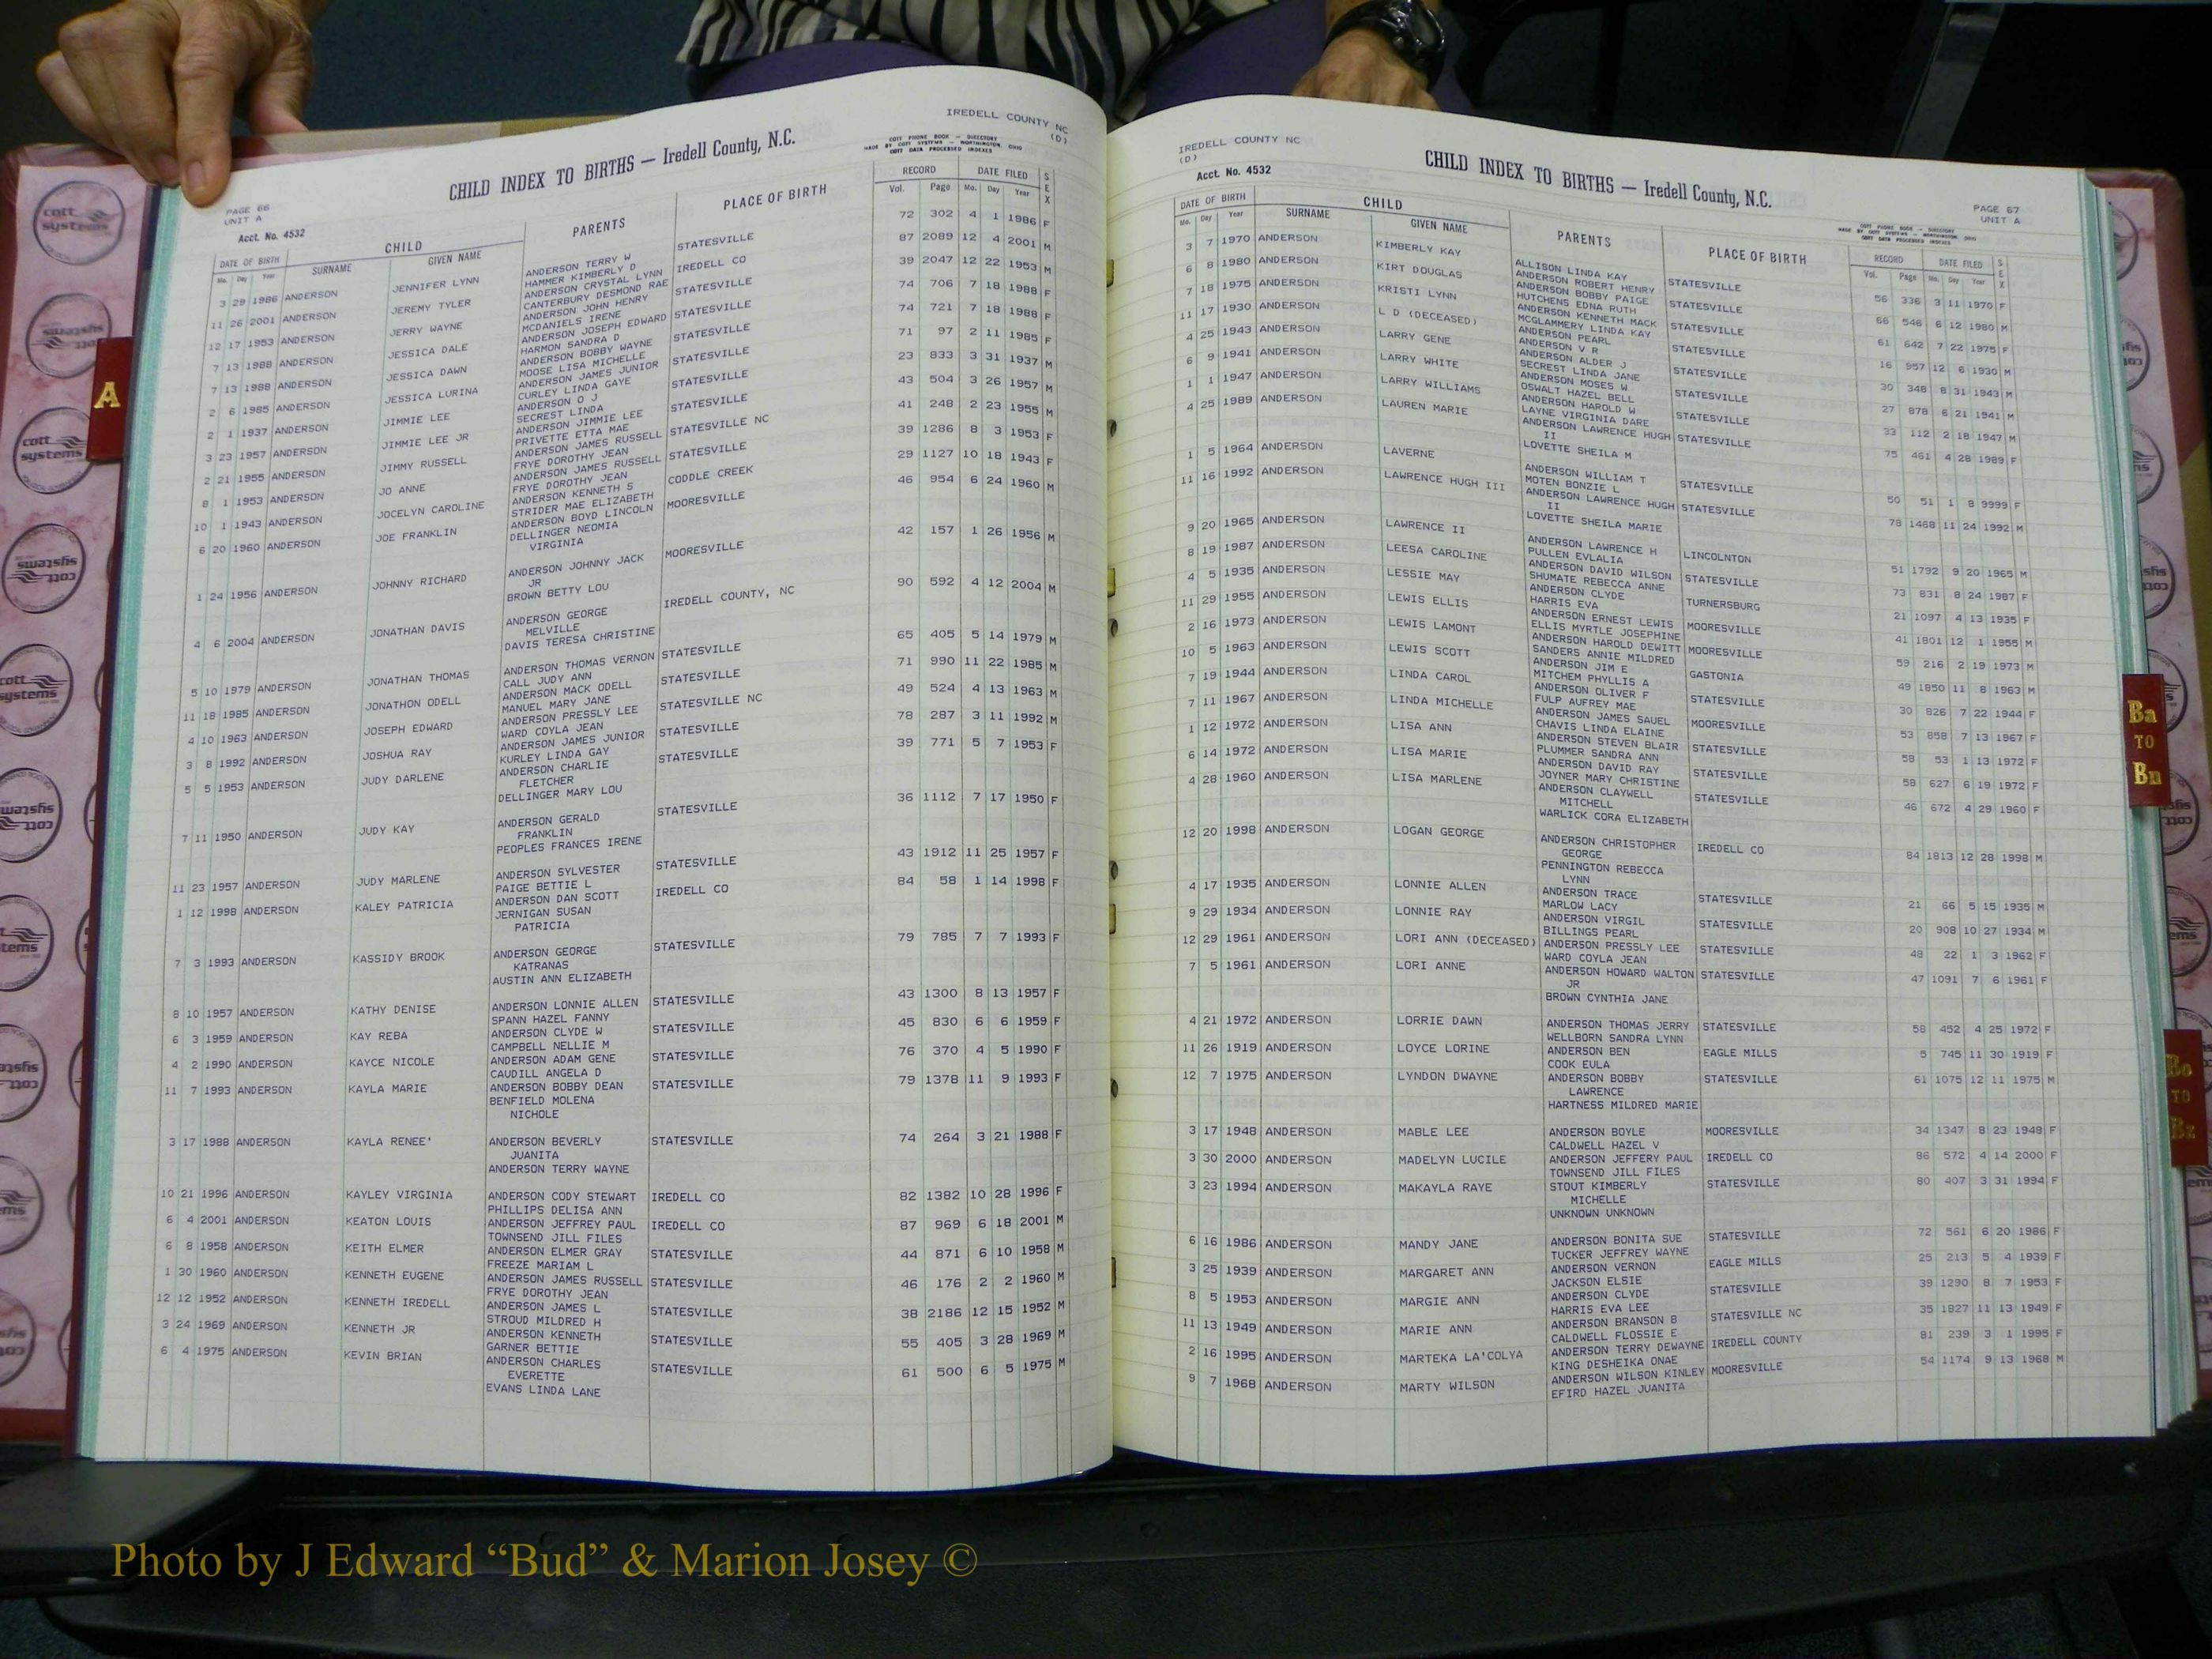 IREDELL COUNTY NC
(D)
CHILD INDEX TO BIRTHS — Iredell County, N.C.
COTT PHONE BOOK — DIRECTORY
MADE BY COTT SYSTEMS — WORTHINGTON, OHIO
COTT DATA PROCESSED INDEXES
PAGE 66
UNIT A
Acct. No. 4532
DATE OF BIRTH CHILD PARENTS PLACE OF BIRTH RECORD DATE FILED SEX
Mo. Day Year SURNAME GIVEN NAME Vol. Page Mo. Day Year
3 29 1986 ANDERSON JENNIFER LYNN ANDERSON TERRY W STATESVILLE 72 302 4 1 1986 F
HAMMER KIMBERLY D
11 26 2001 ANDERSON JEREMY TYLER ANDERSON CRYSTAL LYNN IREDELL CO 87 2089 12 4 2001 M
CANTERBURY DESMOND RAE
12 17 1953 ANDERSON JERRY WAYNE ANDERSON JOHN HENRY STATESVILLE 39 2047 12 22 1953 M
MCDANIELS IRENE
7 13 1988 ANDERSON JESSICA DALE ANDERSON JOSEPH EDWARD STATESVILLE 74 706 7 18 1988 F
HARMON SANDRA D
7 13 1988 ANDERSON JESSICA DAWN ANDERSON BOBBY WAYNE STATESVILLE 74 721 7 18 1988 F
MOOSE LISA MICHELLE
2 6 1985 ANDERSON JESSICA LURINA ANDERSON JAMES JUNIOR STATESVILLE 71 97 2 11 1985 F
CURLEY LINDA GAYE
2 1 1937 ANDERSON JIMMIE LEE ANDERSON O J STATESVILLE 23 833 3 31 1937 M
SECREST LINDA
3 23 1957 ANDERSON JIMMIE LEE JR ANDERSON JIMMIE LEE STATESVILLE 43 504 3 26 1957 M
PRIVETTE ETTA MAE
2 21 1955 ANDERSON JIMMY RUSSELL ANDERSON JAMES RUSSELL STATESVILLE NC 41 248 2 23 1955 M
FRYE DOROTHY JEAN
8 1 1953 ANDERSON JO ANNE ANDERSON JAMES RUSSELL STATESVILLE 39 1286 8 3 1953 F
FRYE DOROTHY JEAN
10 1 1943 ANDERSON JOCELYN CAROLINE ANDERSON KENNETH S CODDLE CREEK 29 1127 10 18 1943 F
STRIDER MAE ELIZABETH
6 20 1960 ANDERSON JOE FRANKLIN ANDERSON BOYD LINCOLN MOORESVILLE 46 954 6 24 1960 M
DELLINGER NEOMIA
VIRGINIA
1 24 1956 ANDERSON JOHNNY RICHARD ANDERSON JOHNNY JACK MOORESVILLE 42 157 1 26 1956 M
JR
BROWN BETTY LOU
4 6 2004 ANDERSON JONATHAN DAVIS ANDERSON GEORGE IREDELL COUNTY, NC 90 592 4 12 2004 M
MELVILLE
DAVIS TERESA CHRISTINE
5 10 1979 ANDERSON JONATHAN THOMAS ANDERSON THOMAS VERNON STATESVILLE 65 405 5 14 1979 M
CALL JUDY ANN
11 18 1985 ANDERSON JONATHON ODELL ANDERSON MACK ODELL STATESVILLE 71 990 11 22 1985 M
MANUEL MARY JANE
4 10 1963 ANDERSON JOSEPH EDWARD ANDERSON PRESSLY LEE STATESVILLE NC 49 524 4 13 1963 M
WARD COYLA JEAN
3 8 1992 ANDERSON JOSHUA RAY ANDERSON JAMES JUNIOR STATESVILLE 78 287 3 11 1992 M
KURLEY LINDA GAY
5 5 1953 ANDERSON JUDY DARLENE ANDERSON CHARLIE STATESVILLE 39 771 5 7 1953 F
FLETCHER
DELLINGER MARY LOU
7 11 1950 ANDERSON JUDY KAY ANDERSON GERALD STATESVILLE 36 1112 7 17 1950 F
FRANKLIN
PEOPLES FRANCES IRENE
11 23 1957 ANDERSON JUDY MARLENE ANDERSON SYLVESTER STATESVILLE 43 1912 11 25 1957 F
PAIGE BETTIE L
1 12 1998 ANDERSON KALEY PATRICIA ANDERSON DAN SCOTT IREDELL CO 84 58 1 14 1998 F
JERNIGAN SUSAN
PATRICIA
7 3 1993 ANDERSON KASSIDY BROOK ANDERSON GEORGE STATESVILLE 79 785 7 7 1993 F
KATRANAS
AUSTIN ANN ELIZABETH
8 10 1957 ANDERSON KATHY DENISE ANDERSON LONNIE ALLEN STATESVILLE 43 1300 8 13 1957 F
SPANN HAZEL FANNY
6 3 1959 ANDERSON KAY REBA ANDERSON CLYDE W STATESVILLE 45 830 6 6 1959 F
CAMPBELL NELLIE M
4 2 1990 ANDERSON KAYCE NICOLE ANDERSON ADAM GENE STATESVILLE 76 370 4 5 1990 F
CAUDILL ANGELA D
11 7 1993 ANDERSON KAYLA MARIE ANDERSON BOBBY DEAN STATESVILLE 79 1378 11 9 1993 F
BENFIELD MOLENA
NICHOLE
3 17 1988 ANDERSON KAYLA RENEE' ANDERSON BEVERLY STATESVILLE 74 264 3 21 1988 F
JUANITA
ANDERSON TERRY WAYNE
10 21 1996 ANDERSON KAYLEY VIRGINIA ANDERSON CODY STEWART IREDELL CO 82 1382 10 28 1996 F
PHILLIPS DELISA ANN
6 4 2001 ANDERSON KEATON LOUIS ANDERSON JEFFREY PAUL IREDELL CO 87 969 6 18 2001 M
TOWNSEND JILL FILES
6 8 1958 ANDERSON KEITH ELMER ANDERSON ELMER GRAY STATESVILLE 44 871 6 10 1958 M
FREEZE MARIAM L
1 30 1960 ANDERSON KENNETH EUGENE ANDERSON JAMES RUSSELL STATESVILLE 46 176 2 2 1960 M
FRYE DOROTHY JEAN
12 12 1952 ANDERSON KENNETH IREDELL ANDERSON JAMES L STATESVILLE 38 2186 12 15 1952 M
STROUD MILDRED H
3 24 1969 ANDERSON KENNETH JR ANDERSON KENNETH STATESVILLE 55 405 3 28 1969 M
GARNER BETTIE
6 4 1975 ANDERSON KEVIN BRIAN ANDERSON CHARLES STATESVILLE 61 500 6 5 1975 M
EVERETTE
EVANS LINDA LANE
IREDELL COUNTY NC
(D)
Acct. No. 4532
CHILD INDEX TO BIRTHS — Iredell County, N.C.
PAGE 67
UNIT A
DATE OF BIRTH CHILD PARENTS PLACE OF BIRTH RECORD DATE FILED SEX
Mo. Day Year SURNAME GIVEN NAME Vol. Page Mo. Day Year
3 7 1970 ANDERSON KIMBERLY KAY ALLISON LINDA KAY STATESVILLE 56 336 3 11 1970 F
ANDERSON ROBERT HENRY
6 8 1980 ANDERSON KIRT DOUGLAS ANDERSON BOBBY PAIGE STATESVILLE 66 546 6 12 1980 M
HUTCHENS EDNA RUTH
7 18 1975 ANDERSON KRISTI LYNN ANDERSON KENNETH MACK STATESVILLE 61 642 7 22 1975 F
MCGLAMMERY LINDA KAY
11 17 1930 ANDERSON L D (DECEASED) ANDERSON PEARL STATESVILLE 16 957 12 6 1930 M
ANDERSON V R
4 25 1943 ANDERSON LARRY GENE ANDERSON ALDER J STATESVILLE 30 348 8 31 1943 M
SECREST LINDA JANE
6 9 1941 ANDERSON LARRY WHITE ANDERSON MOSES W STATESVILLE 27 878 6 21 1941 M
OSWALT HAZEL BELL
1 1 1947 ANDERSON LARRY WILLIAMS ANDERSON HAROLD W STATESVILLE 33 112 2 18 1947 M
LAYNE VIRGINIA DARE
4 25 1989 ANDERSON LAUREN MARIE ANDERSON LAWRENCE HUGH STATESVILLE 75 461 4 28 1989 F
II
LOVETTE SHEILA M
1 5 1964 ANDERSON LAVERNE ANDERSON WILLIAM T STATESVILLE 50 51 1 8 9999 F
MOTEN BONZIE L
11 16 1992 ANDERSON LAWRENCE HUGH III ANDERSON LAWRENCE HUGH STATESVILLE 78 1468 11 24 1992 M
II
LOVETTE SHEILA MARIE
9 20 1965 ANDERSON LAWRENCE II ANDERSON LAWRENCE H LINCOLNTON 51 1792 9 20 1965 M
PULLEN EVLALIA
8 19 1987 ANDERSON LEESA CAROLINE ANDERSON DAVID WILSON STATESVILLE 73 831 8 24 1987 F
SHUMATE REBECCA ANNE
4 5 1935 ANDERSON LESSIE MAY ANDERSON CLYDE TURNERSBURG 21 1097 4 13 1935 F
HARRIS EVA
11 29 1955 ANDERSON LEWIS ELLIS ANDERSON ERNEST LEWIS MOORESVILLE 41 1801 12 1 1955 M
ELLIS MYRTLE JOSEPHINE
2 16 1973 ANDERSON LEWIS LAMONT ANDERSON HAROLD DEWITT MOORESVILLE 59 216 2 19 1973 M
SANDERS ANNIE MILDRED
10 5 1963 ANDERSON LEWIS SCOTT ANDERSON JIM E GASTONIA 49 1850 11 8 1963 M
MITCHEM PHYLLIS A
7 19 1944 ANDERSON LINDA CAROL ANDERSON OLIVER F STATESVILLE 30 826 7 22 1944 F
FULP AUFREY MAE
7 11 1967 ANDERSON LINDA MICHELLE ANDERSON JAMES SAUEL MOORESVILLE 53 858 7 13 1967 F
CHAVIS LINDA ELAINE
1 12 1972 ANDERSON LISA ANN ANDERSON STEVEN BLAIR STATESVILLE 58 53 1 13 1972 F
PLUMMER SANDRA ANN
6 14 1972 ANDERSON LISA MARIE ANDERSON DAVID RAY STATESVILLE 58 627 6 19 1972 F
JOYNER MARY CHRISTINE
4 28 1960 ANDERSON LISA MARLENE ANDERSON CLAYWELL STATESVILLE 46 672 4 29 1960 F
MITCHELL
WARLICK CORA ELIZABETH
12 20 1998 ANDERSON LOGAN GEORGE ANDERSON CHRISTOPHER IREDELL CO 84 1813 12 28 1998 M
GEORGE
PENNINGTON REBECCA
LYNN
4 17 1935 ANDERSON LONNIE ALLEN ANDERSON TRACE STATESVILLE 21 66 5 15 1935 M
MARLOW LACY
9 29 1934 ANDERSON LONNIE RAY ANDERSON VIRGIL STATESVILLE 20 908 10 27 1934 M
BILLINGS PEARL
12 29 1961 ANDERSON LORI ANN (DECEASED) ANDERSON PRESSLY LEE STATESVILLE 48 22 1 3 1962 F
WARD COYLA JEAN
7 5 1961 ANDERSON LORI ANNE ANDERSON HOWARD WALTON STATESVILLE 47 1091 7 6 1961 F
JR
BROWN CYNTHIA JANE
4 21 1972 ANDERSON LORRIE DAWN ANDERSON THOMAS JERRY STATESVILLE 58 452 4 25 1972 F
WELLBORN SANDRA LYNN
11 26 1919 ANDERSON LOYCE LORINE ANDERSON BEN EAGLE MILLS 5 745 11 30 1919 F
COOK EULA
12 7 1975 ANDERSON LYNDON DWAYNE ANDERSON BOBBY STATESVILLE 61 1075 12 11 1975 M
LAWRENCE
HARTNESS MILDRED MARIE
3 17 1948 ANDERSON MABLE LEE ANDERSON BOYLE MOORESVILLE 34 1347 8 23 1948 F
CALDWELL HAZEL V
3 30 2000 ANDERSON MADELYN LUCILE ANDERSON JEFFERY PAUL IREDELL CO 86 572 4 14 2000 F
TOWNSEND JILL FILES
3 23 1994 ANDERSON MAKAYLA RAYE STOUT KIMBERLY STATESVILLE 80 407 3 31 1994 F
MICHELLE
UNKNOWN UNKNOWN
6 16 1986 ANDERSON MANDY JANE ANDERSON BONITA SUE STATESVILLE 72 561 6 20 1986 F
TUCKER JEFFREY WAYNE
3 25 1939 ANDERSON MARGARET ANN ANDERSON VERNON EAGLE MILLS 25 213 5 4 1939 F
JACKSON ELSIE
8 5 1953 ANDERSON MARGIE ANN ANDERSON CLYDE STATESVILLE 39 1290 8 7 1953 F
HARRIS EVA LEE
11 13 1949 ANDERSON MARIE ANN ANDERSON BRANSON B STATESVILLE NC 35 1827 11 13 1949 F
CALDWELL FLOSSIE E
2 16 1995 ANDERSON MARTEKA LA'COLYA ANDERSON TERRY DEWAYNE IREDELL COUNTY 81 239 3 1 1995 F
KING DESHEIKA ONAE
9 7 1968 ANDERSON MARTY WILSON ANDERSON WILSON KINLEY MOORESVILLE 54 1174 9 13 1968 M
EFIRD HAZEL JUANITA
A
Ba
TO
Bn
Bo
TO
Bz
cott
systems
Photo by J Edward “Bud” & Marion Josey ©